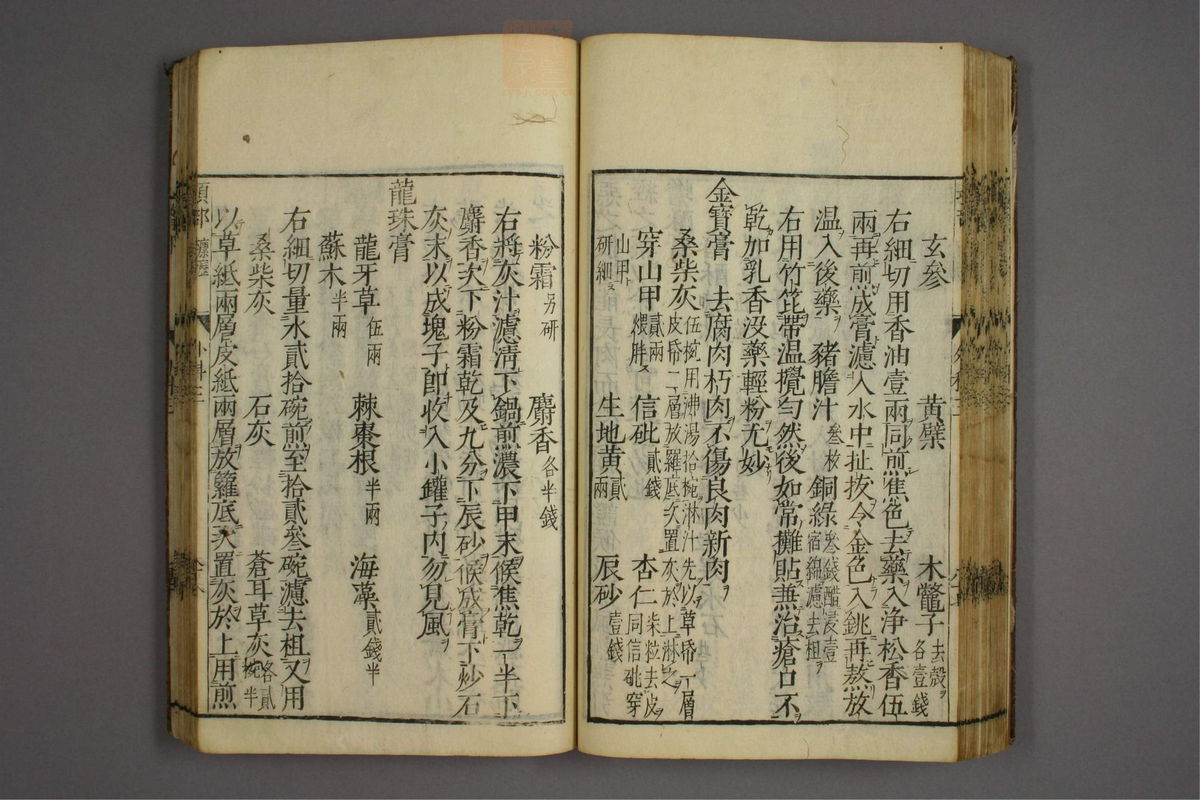 玄參 黃蘗 木鼈子去殼各壹錢
右細切用香油壹兩同煎焦色去藥入淨松香伍
兩再煎成膏濾入水中扯拔令金色入銚再熬放
溫入後藥 豬膽汁叄枚 銅綠叄錢醋浸壹宿綿濾去柤
右用竹箆帶溫攪勻然後如常攤貼兼治瘡口不
乾加乳香沒藥輕粉尤妙
金寶膏 去腐肉朽肉不傷良肉新肉
桑柴灰伍椀用沸湯拾椀淋汁先以草帋一層皮帋一層放羅底次置灰於上淋之
穿山甲貳兩煨胖 信砒貳錢 杏仁柒粒去皮同信砒穿
山甲研細 生地黃貳兩 辰砂壹錢
粉霜另研 麝香各半錢
右將灰汁濾清下鍋煎濃下甲末候焦乾一半下
麝香次下粉霜乾及九分下辰砂候成膏下炒石
灰末以成塊子卽收入小罐子內勿見風
龍珠膏
龍牙草伍兩 棘棗根半兩 海藻貳錢半
蘇木半兩
右細切量水貳拾碗煎至拾貳叄碗濾去柤又用
桑柴灰 石灰 蒼耳草灰各貳椀半
以草紙兩層皮紙兩層放籮底次置灰於上用煎